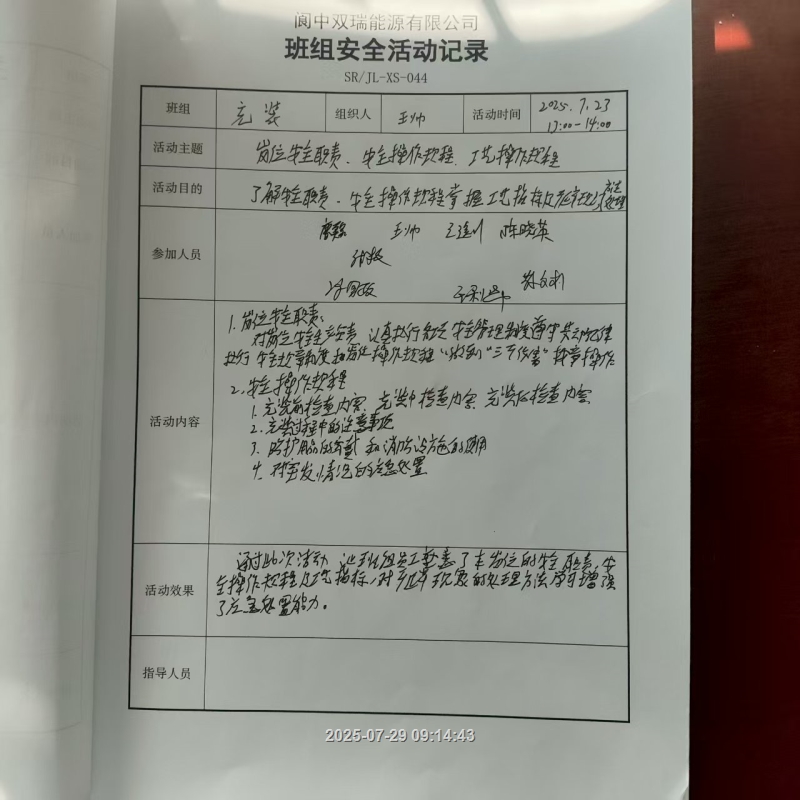 阆中双瑞能源有限公司
班组安全活动记录
SR/JL-XS-044
班组 充装 组织人 王帅 活动时间 2025.7.23
13:00-14:00
活动主题 岗位安全职责、安全操作规程、工艺操作规程
活动目的 了解安全职责、安全操作规程掌握工艺指标及
参加人员
王帅 陈晓英
活动内容
1.岗位安全职责:
对岗位安全生产负责,认真执行各项安全管理制度遵守劳动纪律
执行安全规章制度和岗位操作规程"做到"三不伤害"
2.安全操作规程
1.充装前检查内容、充装中检查内容、充装后检查内容
2.充装过程中的注意事项
3.防护用品的穿戴和消防设施的使用
4.对突发情况的应急处置
活动效果
通过此次活动,让班组员工熟悉了本岗位的安全职责,安
全操作规程及工艺指标,对异常现象的处理方法学习增强
了应急处置能力。
指导人员
2025-07-29 09:14:43